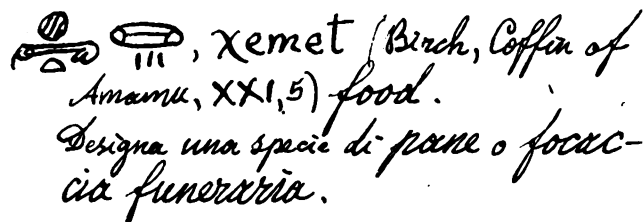 𓐍𓐝𓏏𓏒𓏥, χemet (Birch, Coffin of
Amamu, XXI,5) food.
Designa una specie di pane o focac-
cia funeraria.